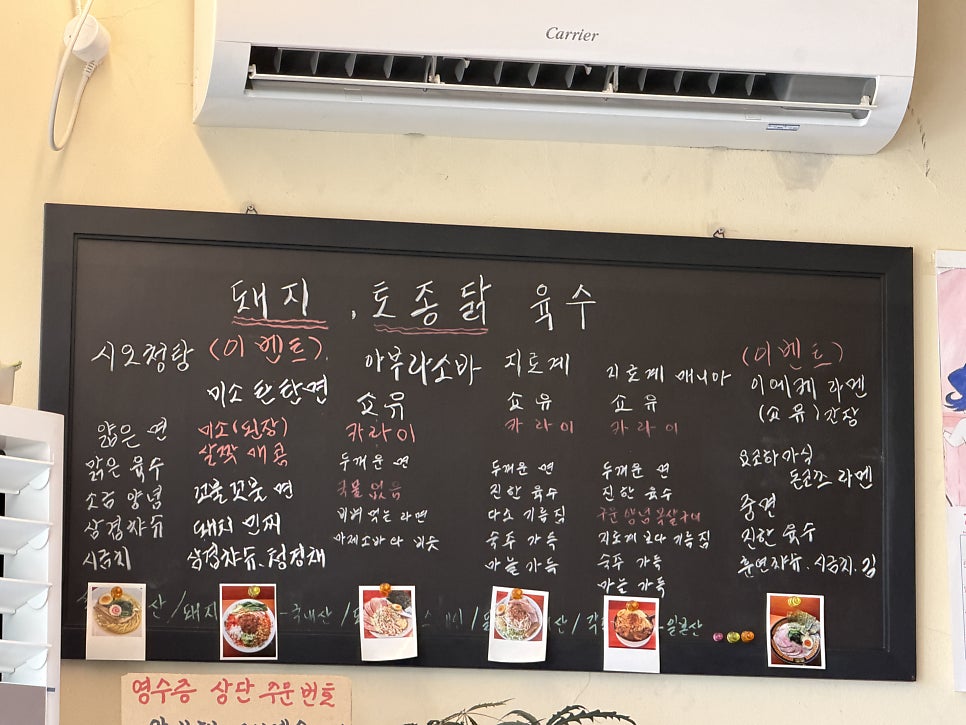 Carrier
돼지, 토종닭 육수
시오청탕
얇은 면
맑은 육수
소금 양념
삼겹챠슈
시금치
(이벤트).
미소 탄탄면
미소(된장)
살짝 매콤
꼬불꼬불 면
돼지 민찌
삼겹챠슈. 청경채
아부라소바
쇼유
카라이
두꺼운 면
국물 없음
비벼 먹는 라면
마제소바다 비슷
지로계
쇼유
카라이
두꺼운 면
진한 육수
다소 기름짐
숙주 가득
마늘 가득
지로계 매니아
쇼유
카라이
두꺼운 면
진한 육수
지로계 보다 기름짐
숙주 가득
마늘 가득
(이벤트)
이에케 라멘
(쇼유) 간장
요코하마식
돈코츠 라멘
중면
진한 육수
훈연챠슈. 시금치. 김
산/돼지
국내산/
산/
일본산
영수증 상단 주문번호